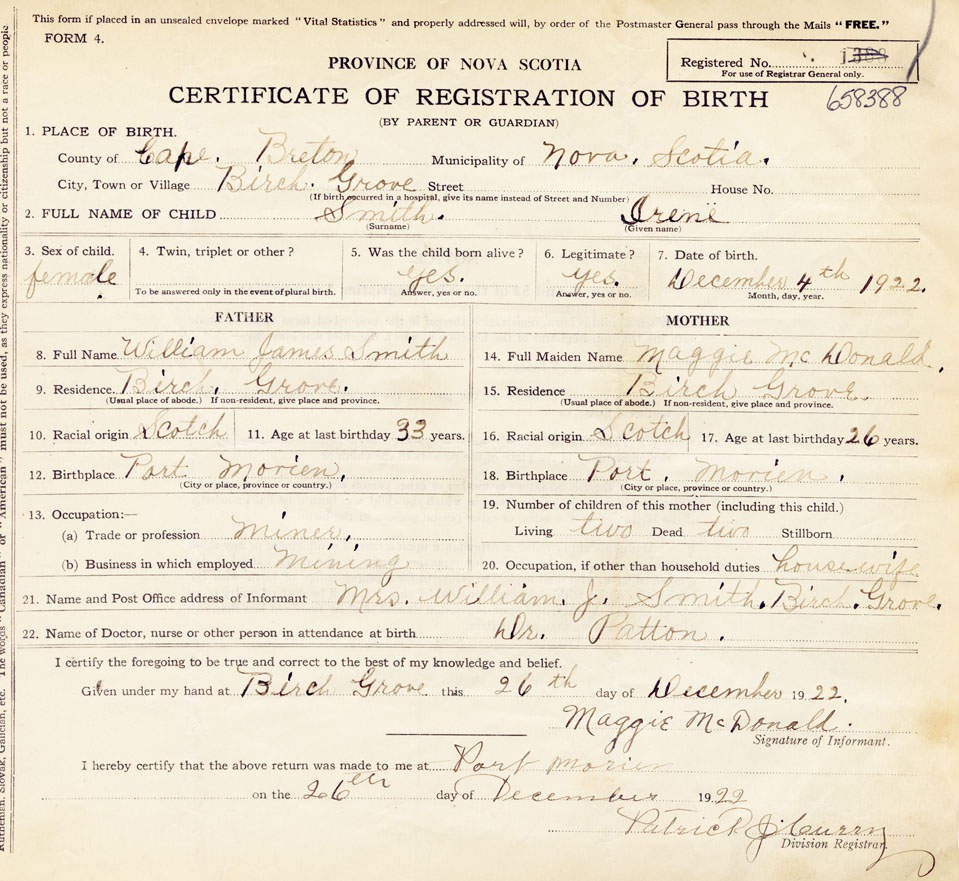 This form if placed in an unsealed envelope marked "Vital Statistics" and properly addressed will, by order of the Postmaster General pass through the Mails "FREE."
FORM 4.
Registered No. 1388
For use of Registrar General only.
PROVINCE OF NOVA SCOTIA
CERTIFICATE OF REGISTRATION OF BIRTH
658388
(BY PARENT OR GUARDIAN)
1. PLACE OF BIRTH.
County of Cape. Breton Municipality of Nova. Scotia.
City, Town or Village Birch. Grove Street House No.
(If birth occurred in a hospital, give its name instead of Street and Number)
2. FULL NAME OF CHILD Smith. Irene
(Surname) (Given name)
3. Sex of child. 4. Twin, triplet or other? 5. Was the child born alive? 6. Legitimate? 7. Date of birth.
female yes. yes. December 4th 1922.
To be answered only in the event of plural birth. Answer, yes or no. Answer, yes or no. Month, day, year.
FATHER MOTHER
8. Full Name William James Smith 14. Full Maiden Name Maggie McDonald,
9. Residence Birch. Grove. 15. Residence Birch Grove.
(Usual place of abode.) If non-resident, give place and province. (Usual place of abode.) If non-resident, give place and province.
10. Racial origin Scotch 11. Age at last birthday 33 years. 16. Racial origin Scotch 17. Age at last birthday 26 years.
12. Birthplace Port Morien, 18. Birthplace Port, Morien,
(City or place, province or country.) (City or place, province or country.)
19. Number of children of this mother (including this child.)
13. Occupation:—
(a) Trade or profession miner, Living two Dead two Stillborn
(b) Business in which employed Mining 20. Occupation, if other than household duties housewife
21. Name and Post Office address of Informant Mrs. William. J. Smith. Birch. Grove.
22. Name of Doctor, nurse or other person in attendance at birth Dr. Patton.
I certify the foregoing to be true and correct to the best of my knowledge and belief.
Given under my hand at Birch Grove this 26th day of December 1922.
Maggie McDonald.
Signature of Informant.
I hereby certify that the above return was made to me at Port Morien
on the 26th day of December 1922
Patrick J. Curry
Division Registrar.
Ruthenian, Slovak, Galician, etc. The words "Canadian" or "American" must not be used, as they express nationality or citizenship but not a race or people.